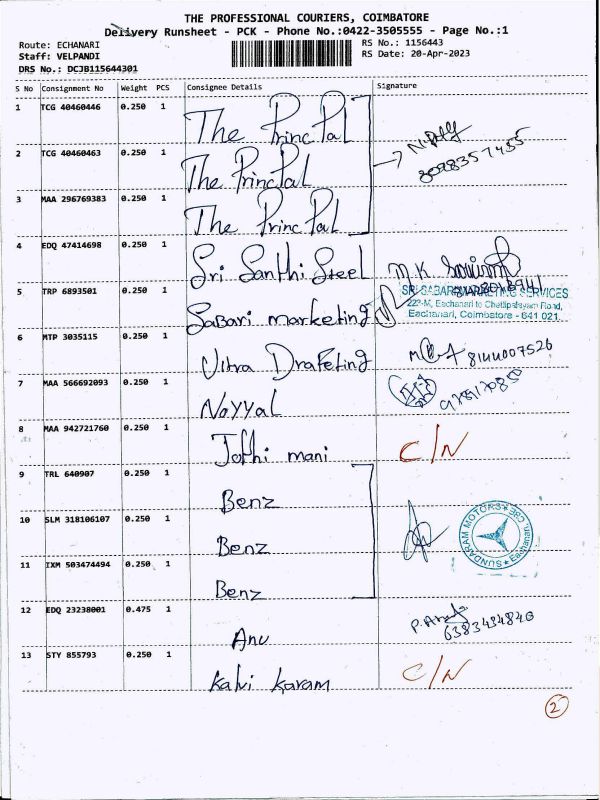 THE PROFESSIONAL COURIERS, COIMBATORE
Delivery Runsheet - PCK - Phone No.:0422-3505555 - Page No.:1
Route: ECHANARI
RS No.: 1156443
Staff: VELPANDI
RS Date: 20-Apr-2023
DRS No.: DCJB115644301
S No Consignment No Weight PCS Consignee Details Signature
1 TCG 40460446 0.250 1 The PrincPal
2 TCG 40460463 0.250 1 The PrincPal
3 MAA 296769383 0.250 1 The PrincPal
4 EDQ 47414698 0.250 1 Sri Santhi Steel M K
5 TRP 6893501 0.250 1 Sabari marketing
SRI SABARI MARKETING SERVICES
222-M, Eachanari to Chettipalayam Road,
Eachanari, Coimbatore - 641 021.
6 MTP 3035115 0.250 1 Ultra Drafeting 8144007526
7 MAA 566692093 0.250 1 Noyyal
8 MAA 942721760 0.250 1 Jothi mani C/N
9 TRL 640907 0.250 1 Benz
10 SLM 318106107 0.250 1 Benz
SUNDARAM MOTORS Eachanari, CBE
11 IXM 503474494 0.250 1 Benz
12 EDQ 23238001 0.475 1 Anu 6383434840
13 STY 855793 0.250 1 Kalvi Karam C/N
2